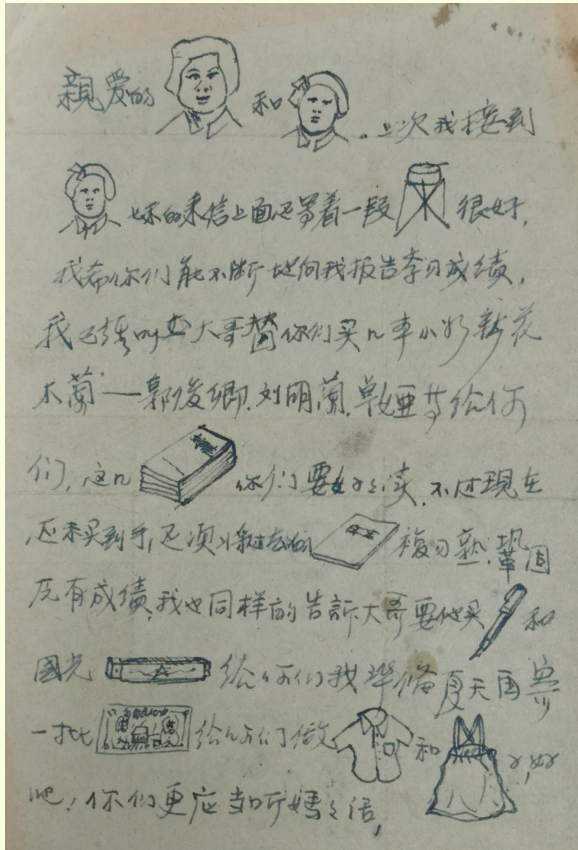 親爱的 和 . 上次我接到
妹的来信上面还写着一段 很好,
我希你们能不断地向我报告学习成绩,
我已经叫 大哥替你们买几本小 新花
木蘭——郭俊卿. 刘明蘭. 卓娅 等给你
们, 这几 你们要好好讀. 不过现在
还未买到手, 还须 将过去的 複习熟. 鞏固
既有成績, 我也同样的告訴大哥要他买 和
國光 给你们我準備夏天再寄
一批 给你们做 和 好
吧! 你们更应当听媽媽话,